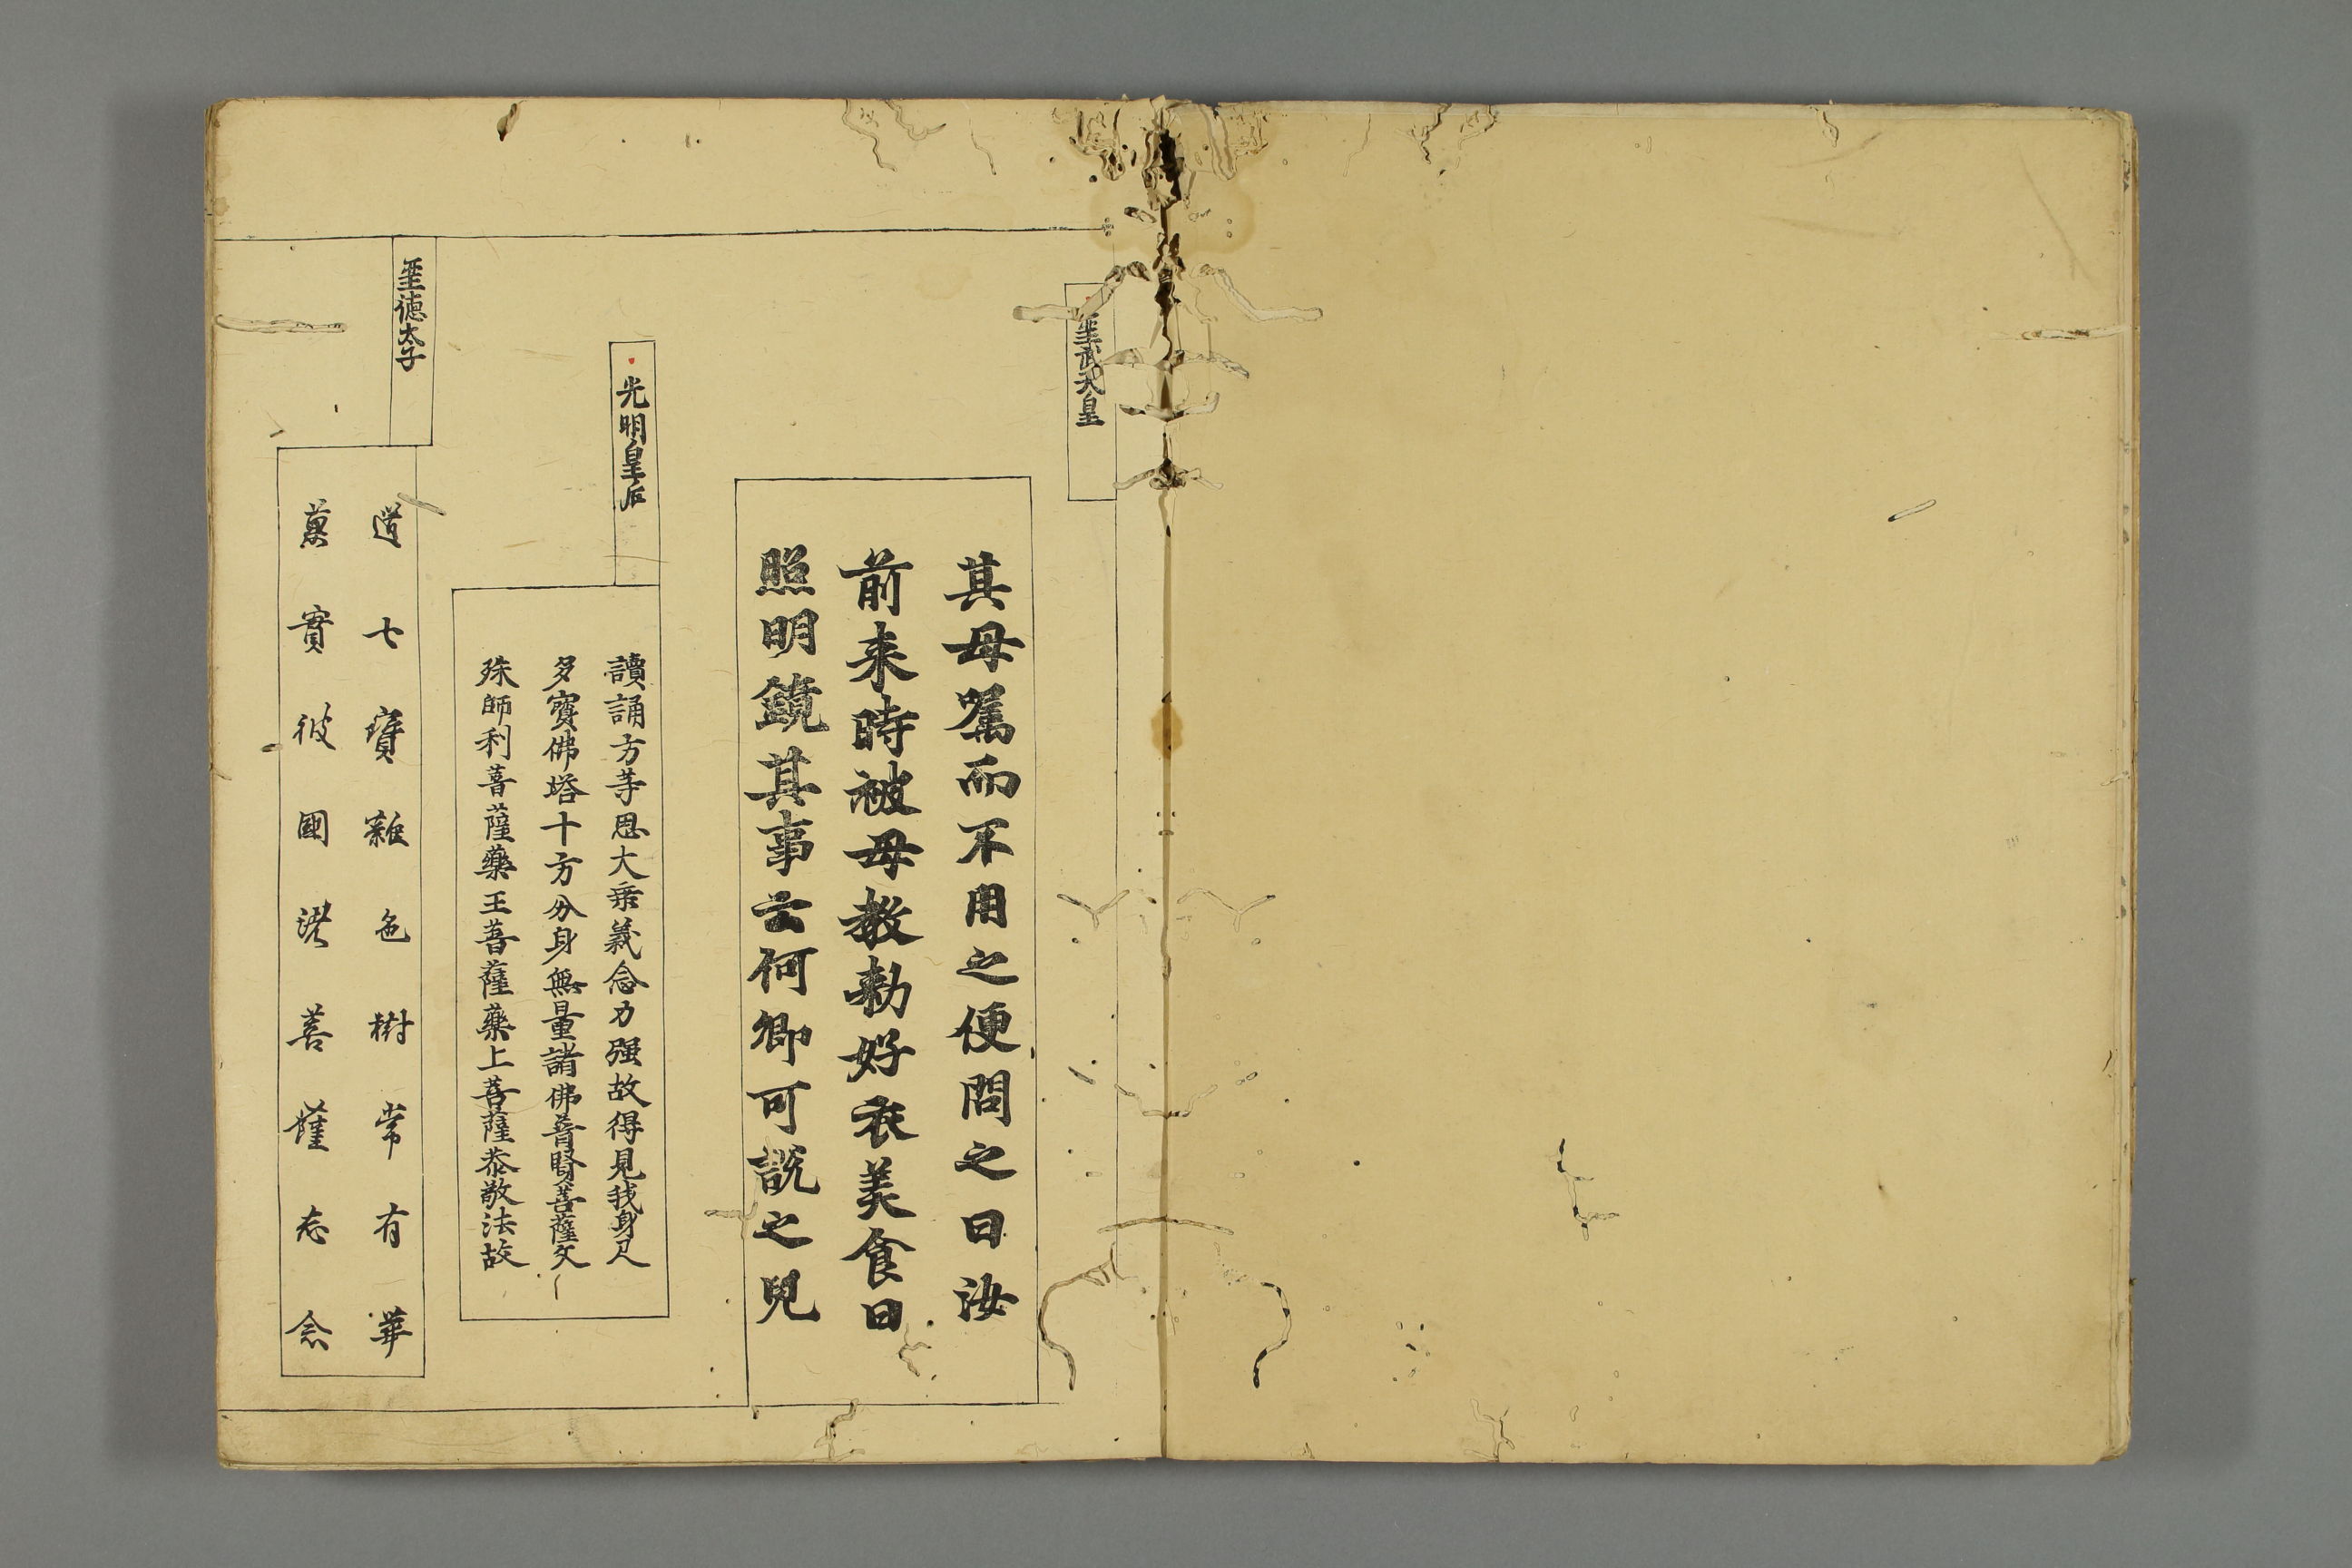 聖武天皇
其母嘱而不用之便問之曰汝
前来時被母教勅好衣美食曰
照明鏡其事云何卿可説之兒
光明皇后
讀誦方等思大乘義念力强故得見我身及
多寳佛塔十方分身無量諸佛普賢菩薩文
殊師利菩薩藥王菩薩藥上菩薩恭敬法故
聖德太子
道七寶雜色樹常有華
菓實彼國諸菩薩志念